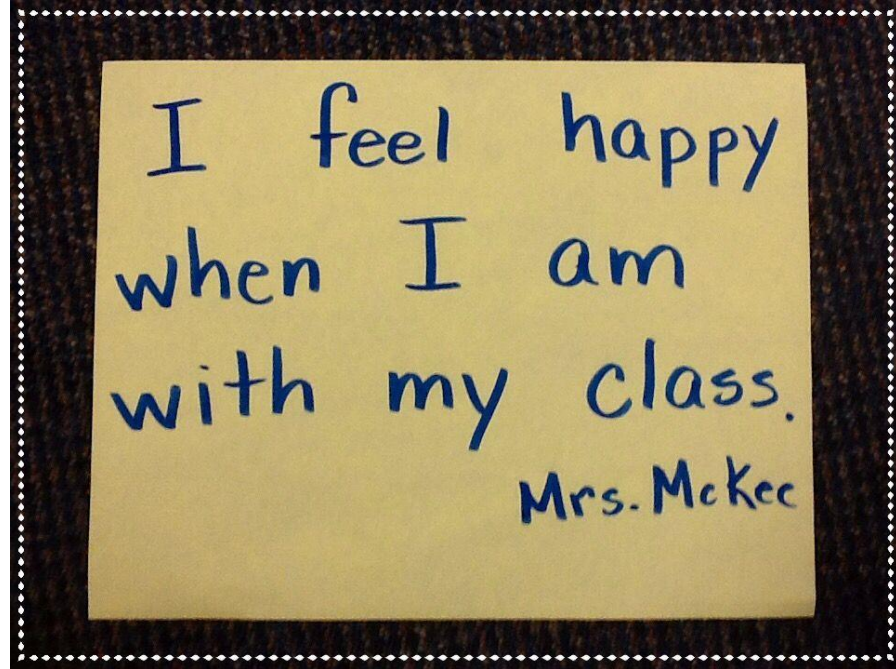 I feel happy
when I am
with my class.
Mrs. McKee